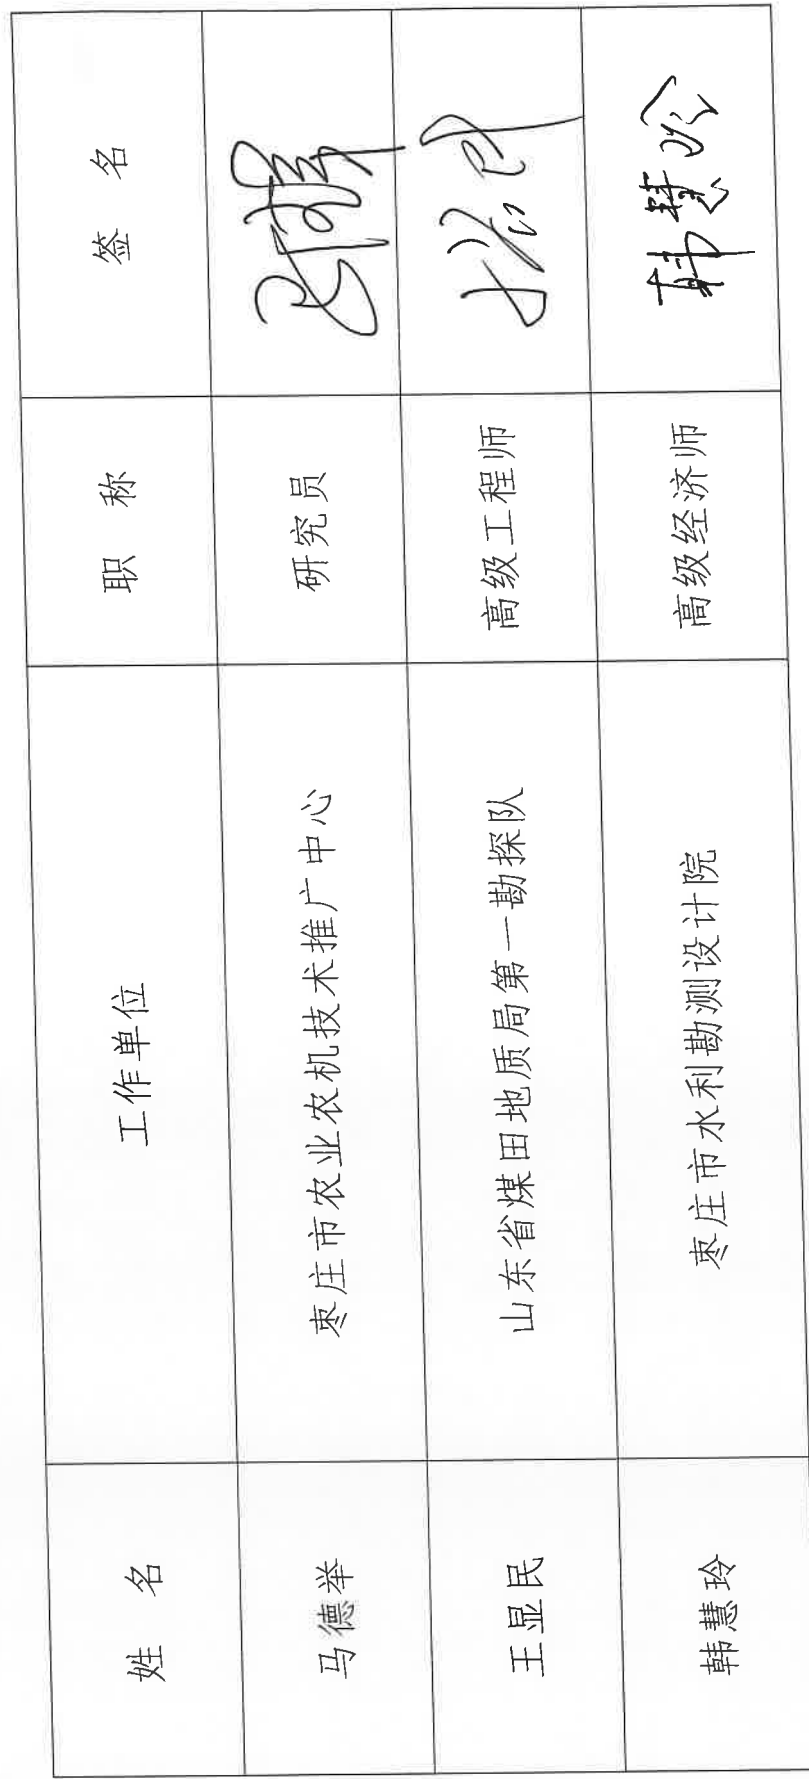 姓 名 工作单位 职 称 签 名
马德举 枣庄市农业农机技术推广中心 研究员
王显民 山东省煤田地质局第一勘探队 高级工程师
韩慧玲 枣庄市水利勘测设计院 高级经济师 韩慧玲